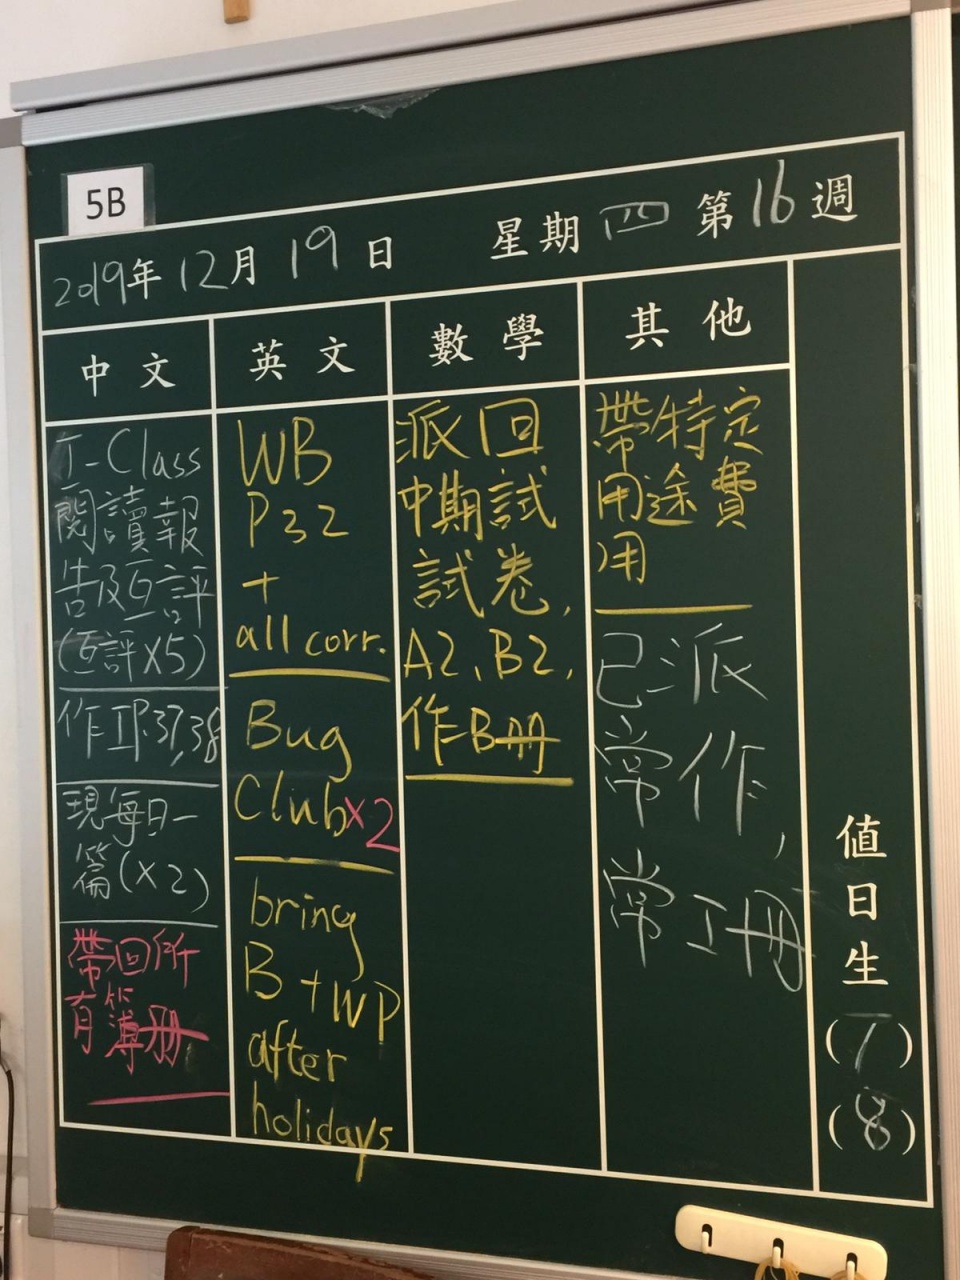 5B
2019年12月19日 星期四第16週
中文
I-Class
閱讀報
告及互評
(互評x5)
作工P.37,38
現每日一
篇(x2)
帶回所
有簿册
英文
WB
P32
+
all corr.
Bug
Club x2
bring
B + WP
after
holidays
數學
派回
中期試
試卷,
A2、B2,
作B册
其他
帶特定
用途費
用
已派
常作,
常工冊
值日生
(7)
(8)